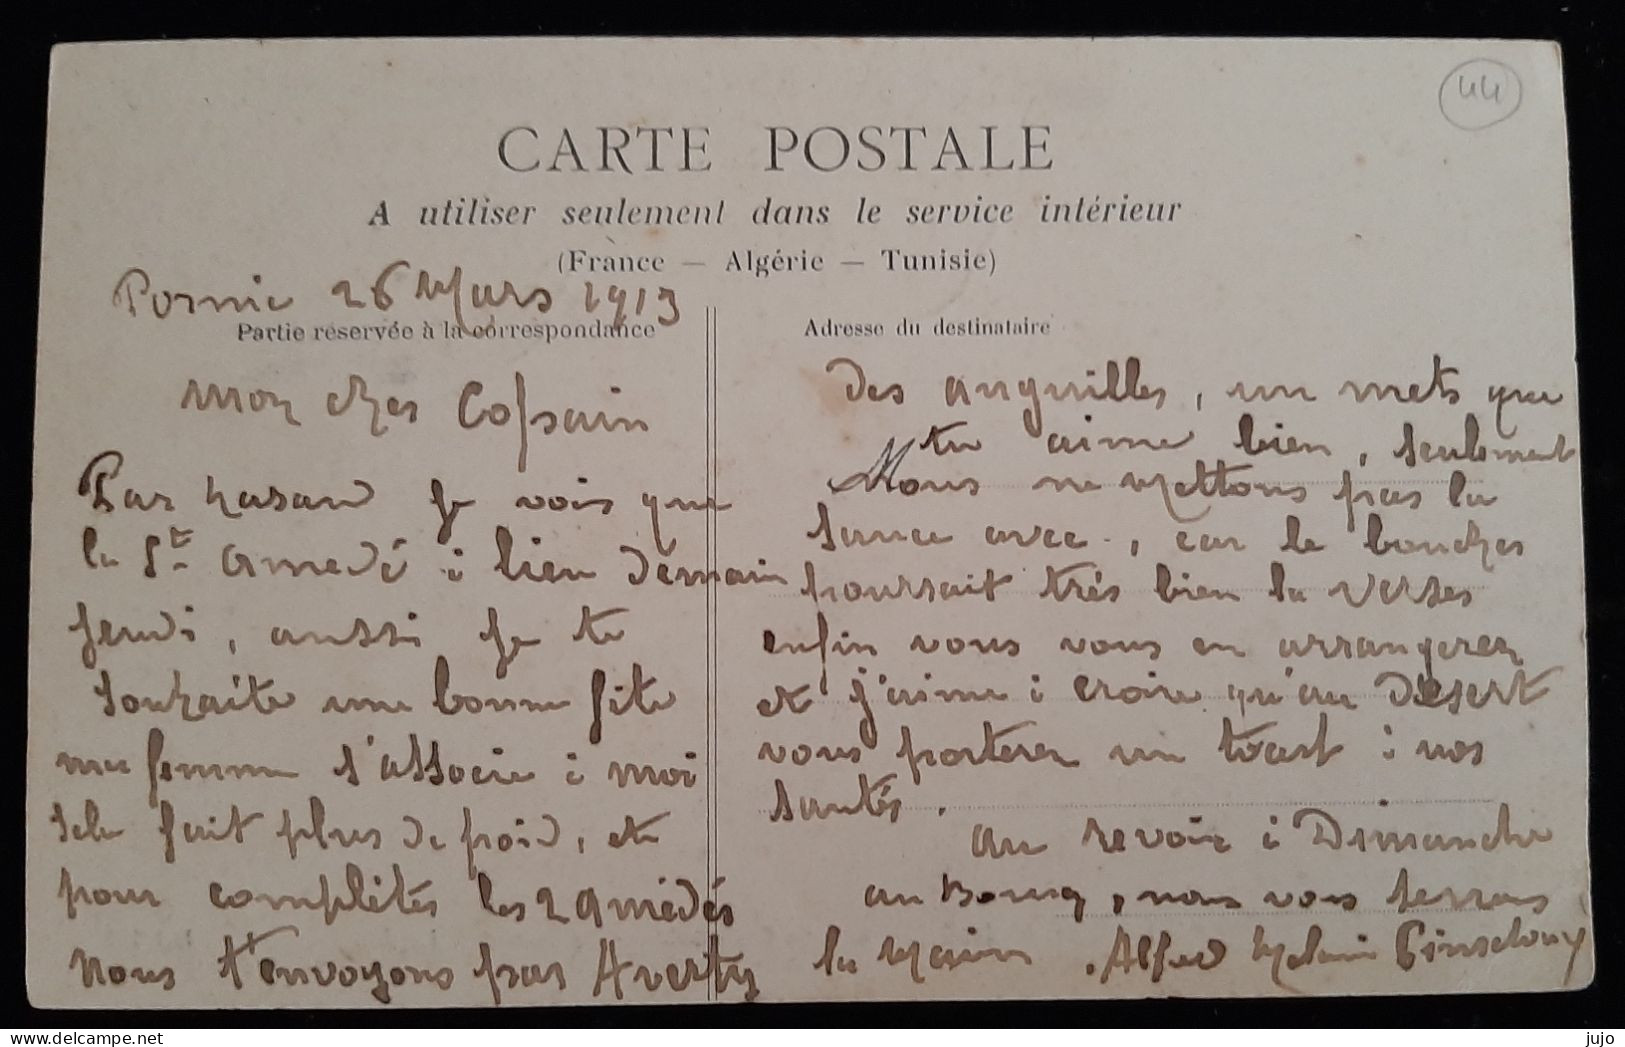 44
CARTE POSTALE
A utiliser seulement dans le service intérieur
(France — Algérie — Tunisie)
Pornic 26 Mars 1913
Partie réservée à la correspondance
Adresse du destinataire
Mon cher Copain
Par hasard je vois que
la St Amedé à lieu demain
jeudi, aussi je te
souhaite une bonne fête
ma femme s'associe à moi
sela fait plus de poid, et
pour complétés les 2 Amédés
nous t'envoyons par Averty
des anguilles, un mets que
tu aime bien, seulement
Nous ne Mettons pas la
sauce avec, car le boucher
pourrait très bien la verser
enfin vous vous en arrangerez
et j'aime à croire qu'au désert
vous porterez un toast à nos
santés.
au revoir à Dimanche
au Bourg, nous vous serrons
la Main. Alfred
delcampe.net
jujo